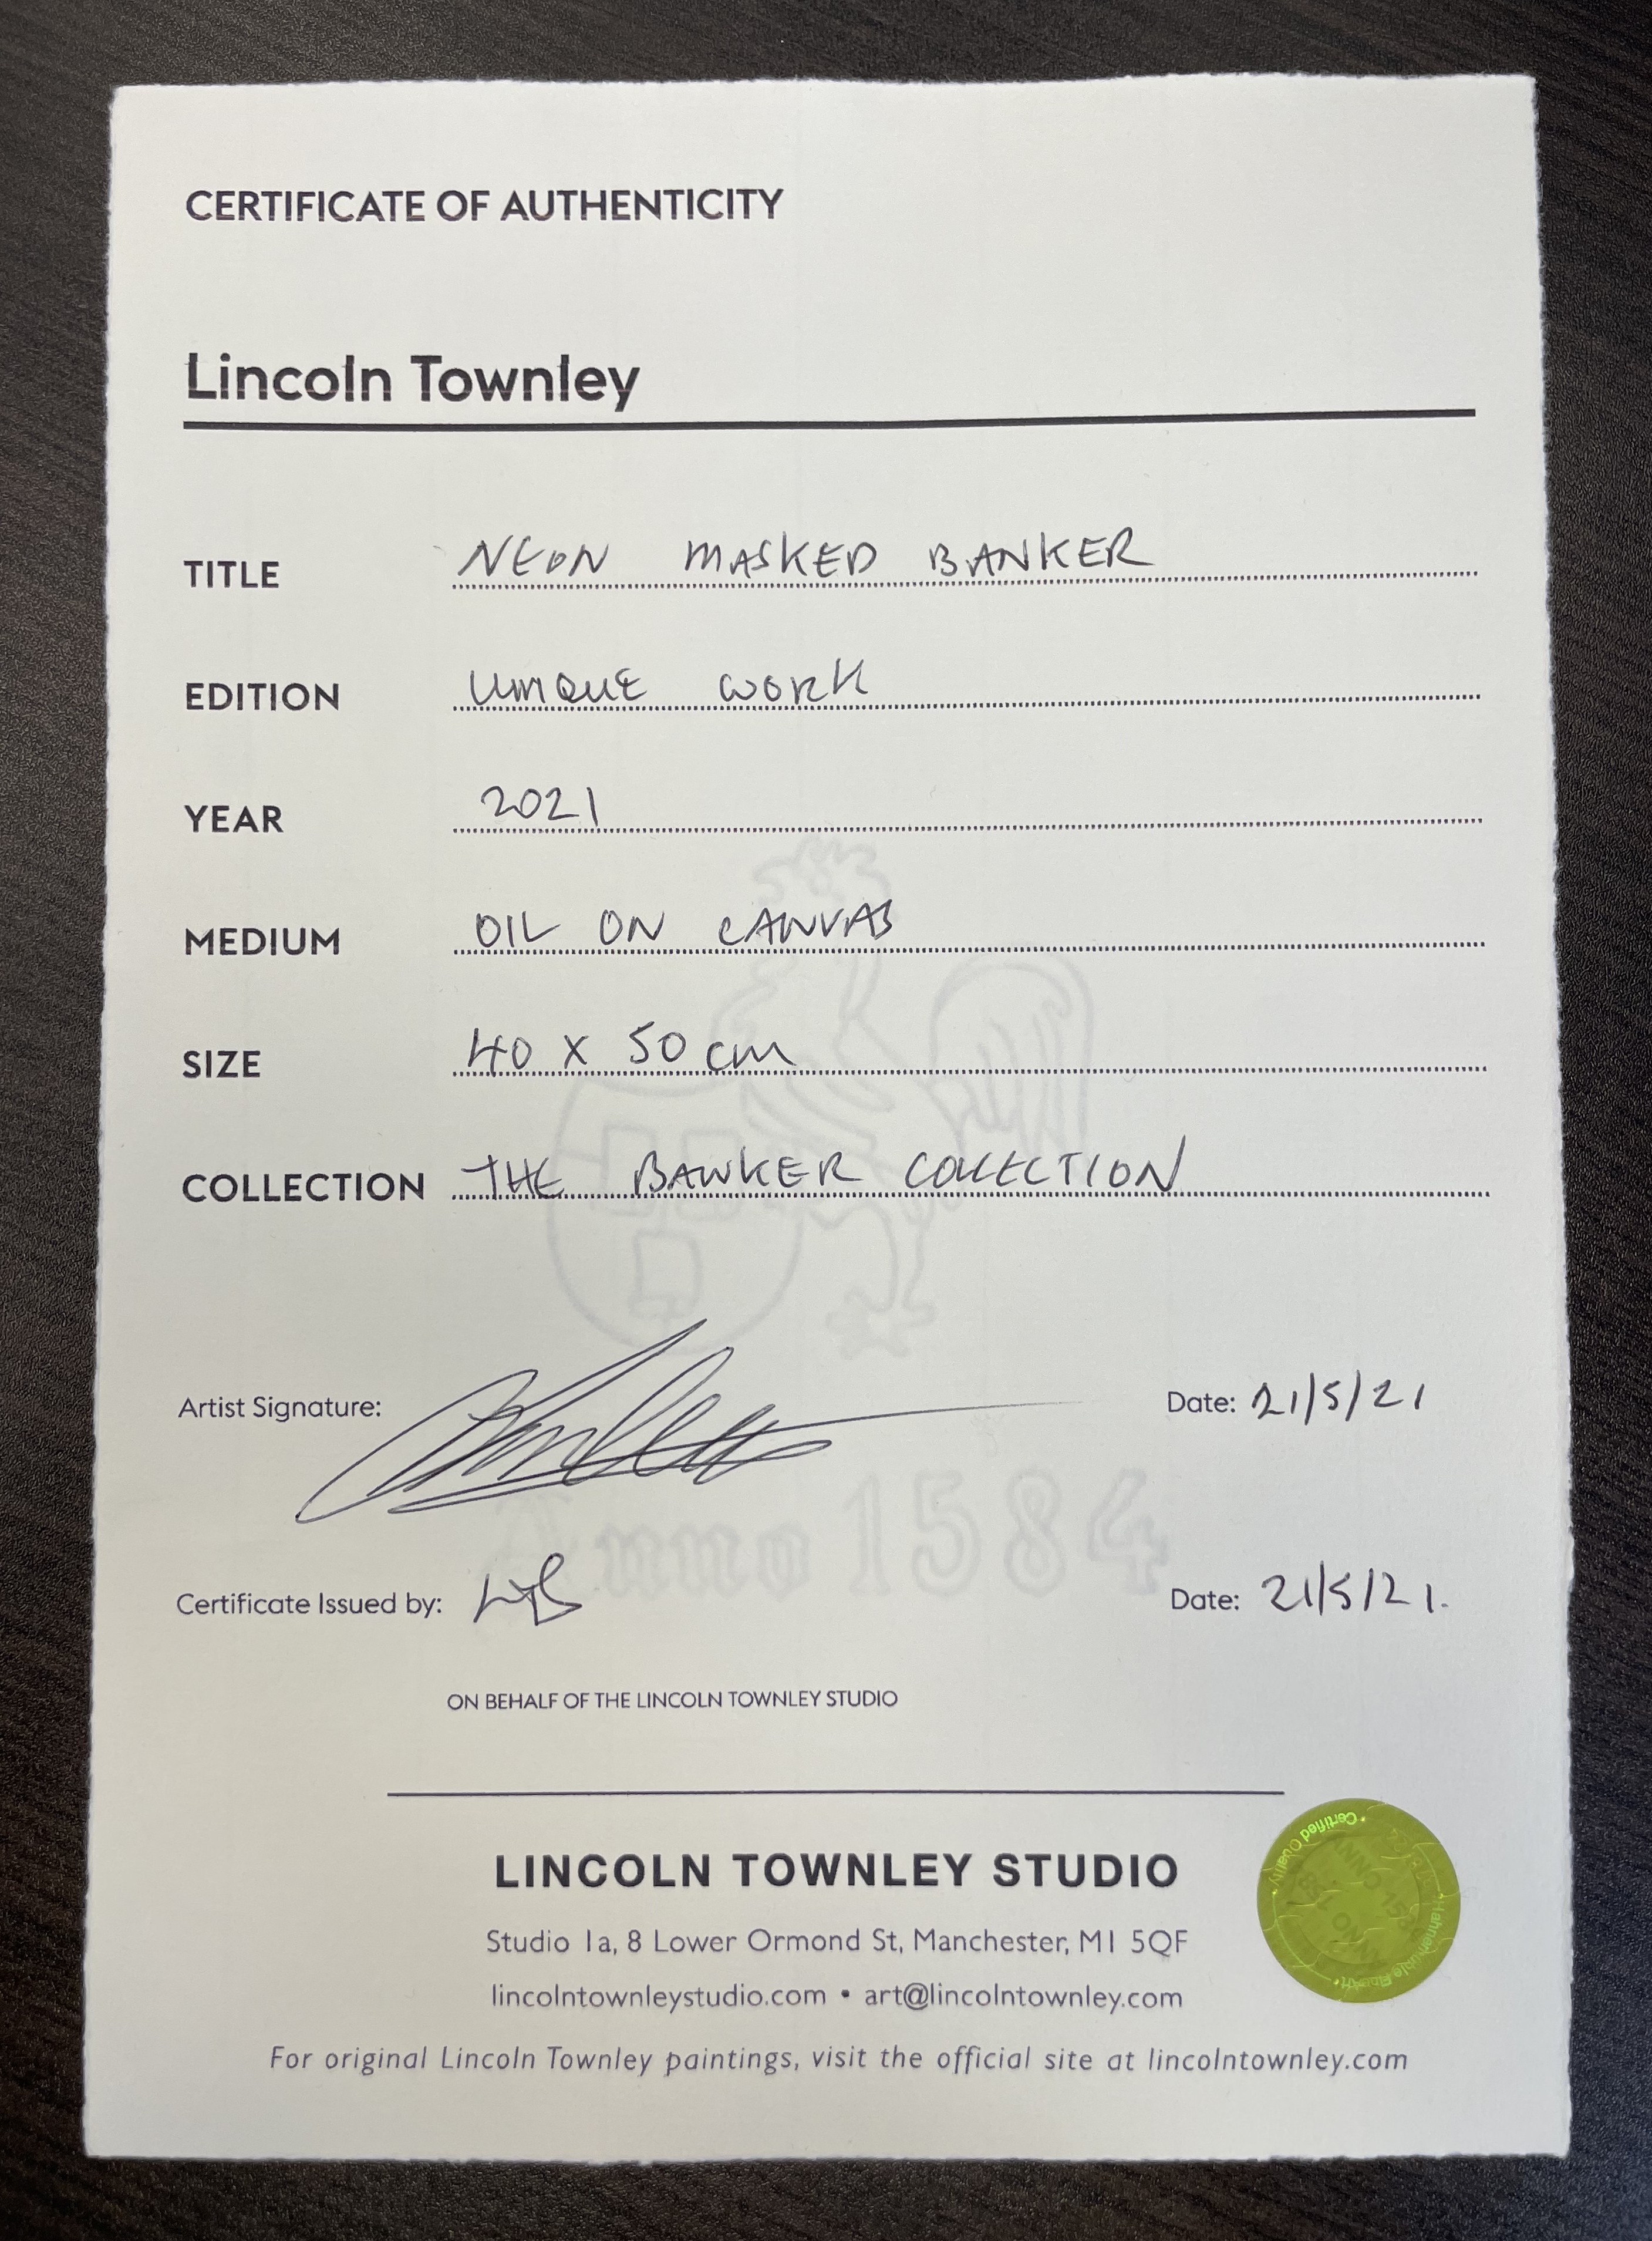 CERTIFICATE OF AUTHENTICITY
Lincoln Townley
TITLE NEON MASKED BANKER
EDITION UNIQUE WORK
YEAR 2021
MEDIUM OIL ON CANVAS
SIZE 40 x 50 cm
COLLECTION THE BANKER COLLECTION
Artist Signature: Date: 21/5/21
Anno 1584
Certificate Issued by: Date: 21/5/21.
ON BEHALF OF THE LINCOLN TOWNLEY STUDIO
LINCOLN TOWNLEY STUDIO
Studio 1a, 8 Lower Ormond St, Manchester, M1 5QF
lincolntownleystudio.com • art@lincolntownley.com
For original Lincoln Townley paintings, visit the official site at lincolntownley.com
Certified Quality
Hahnemühle FineArt